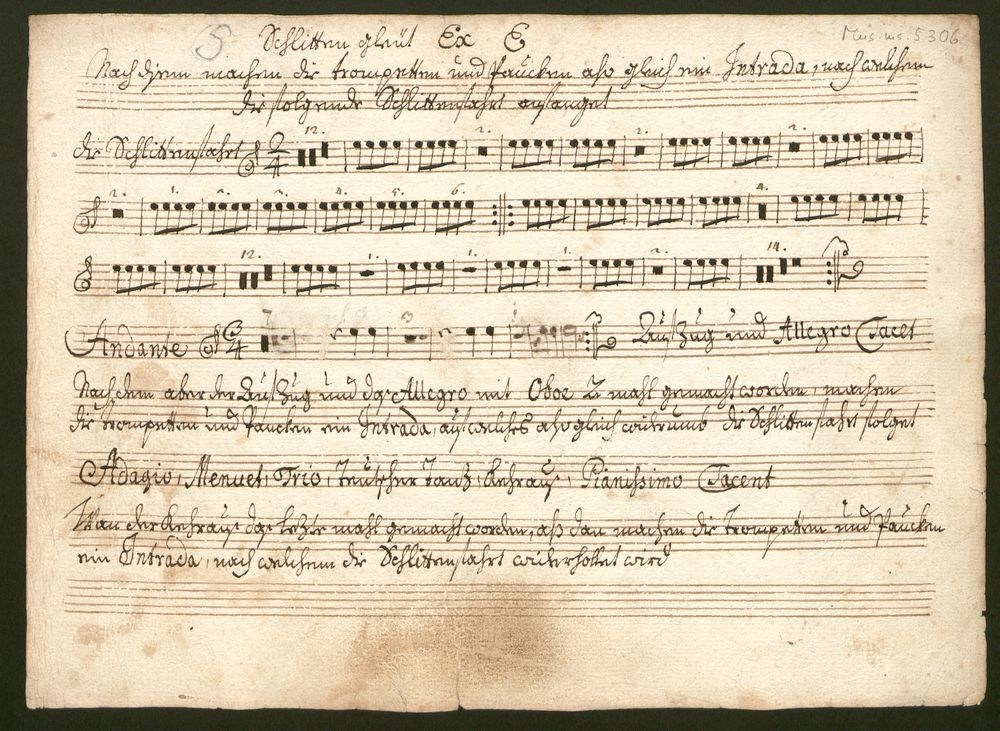 5 Schlitten gleüt Ex E Mus. ms. 5306
Nach disem machen die trompetten und Paucken also gleich ein Intrada, nach welchem
die folgende Schlittenfahrt anfanget
die Schlittenfahrt 2/4 12. 2. 2. 2.
2. 1. 2. 3. 4. 5. 6. 4.
12. 1. 1. 1. 2. 14.
Andante 3/4 7 3 1 Aufzug und Allegro Tacet
Nach dem aber der Aufzug und das Allegro mit Oboe 2 mahl gemacht worden, machen
die trompetten und Paucken ein Intrada, auf welches also gleich widerumb die Schlittenfahrt folget
Adagio, Menuet, Trio, Teutscher Tantz, Kehraus, Pianissimo Tacent
Wan der Kehraus das letzte mahl gemacht worden, als dan machen die trompetten und Paucken
ein Intrada, nach welchem die Schlittenfahrt widerhollet wird